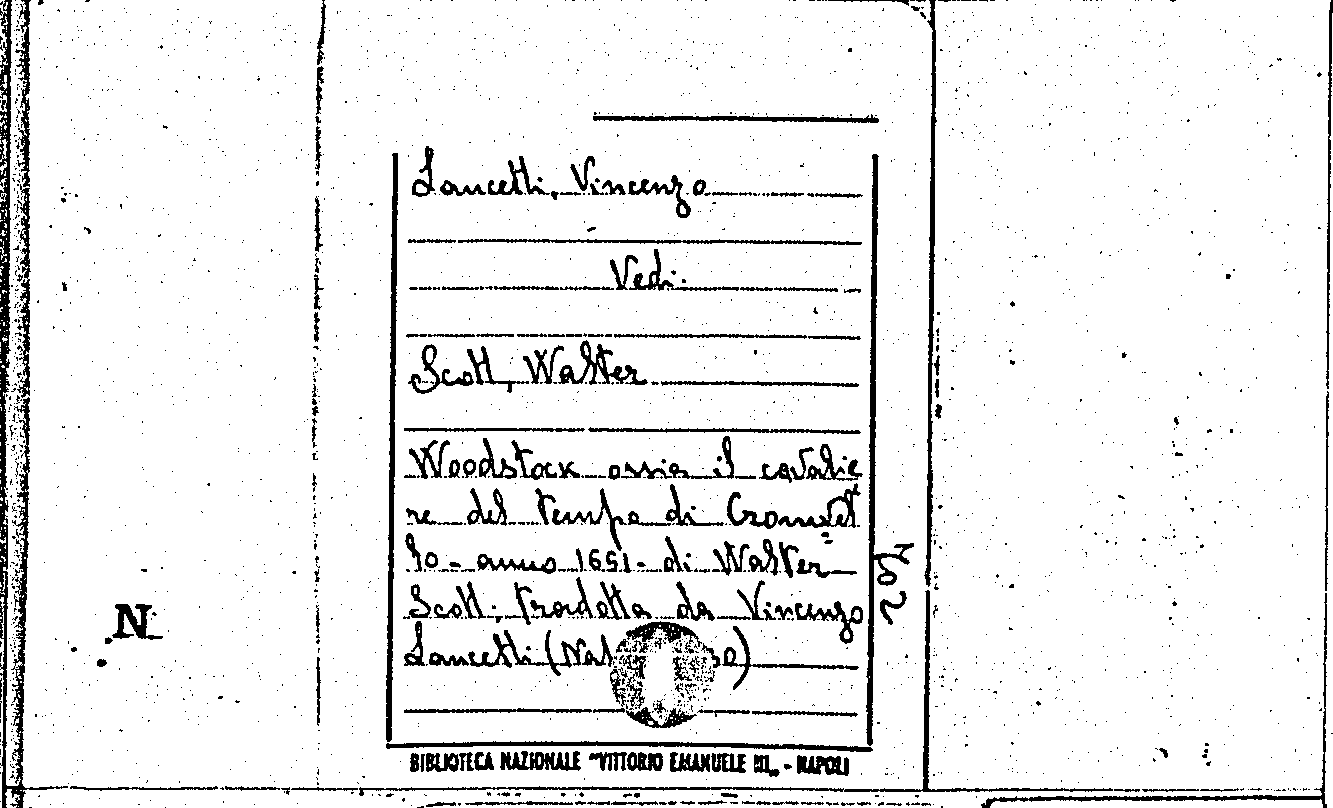 Lancetti, Vincenzo
Vedi:
Scott, Walter
Woodstock ossia il cavalie
re del tempo di Cromvel
lo - anno 1651 - di Walter
Scott; tradotta da Vincenzo
Lancetti (Nal
so)
N
BIBLIOTECA NAZIONALE "VITTORIO EMANUELE III" - NAPOLI